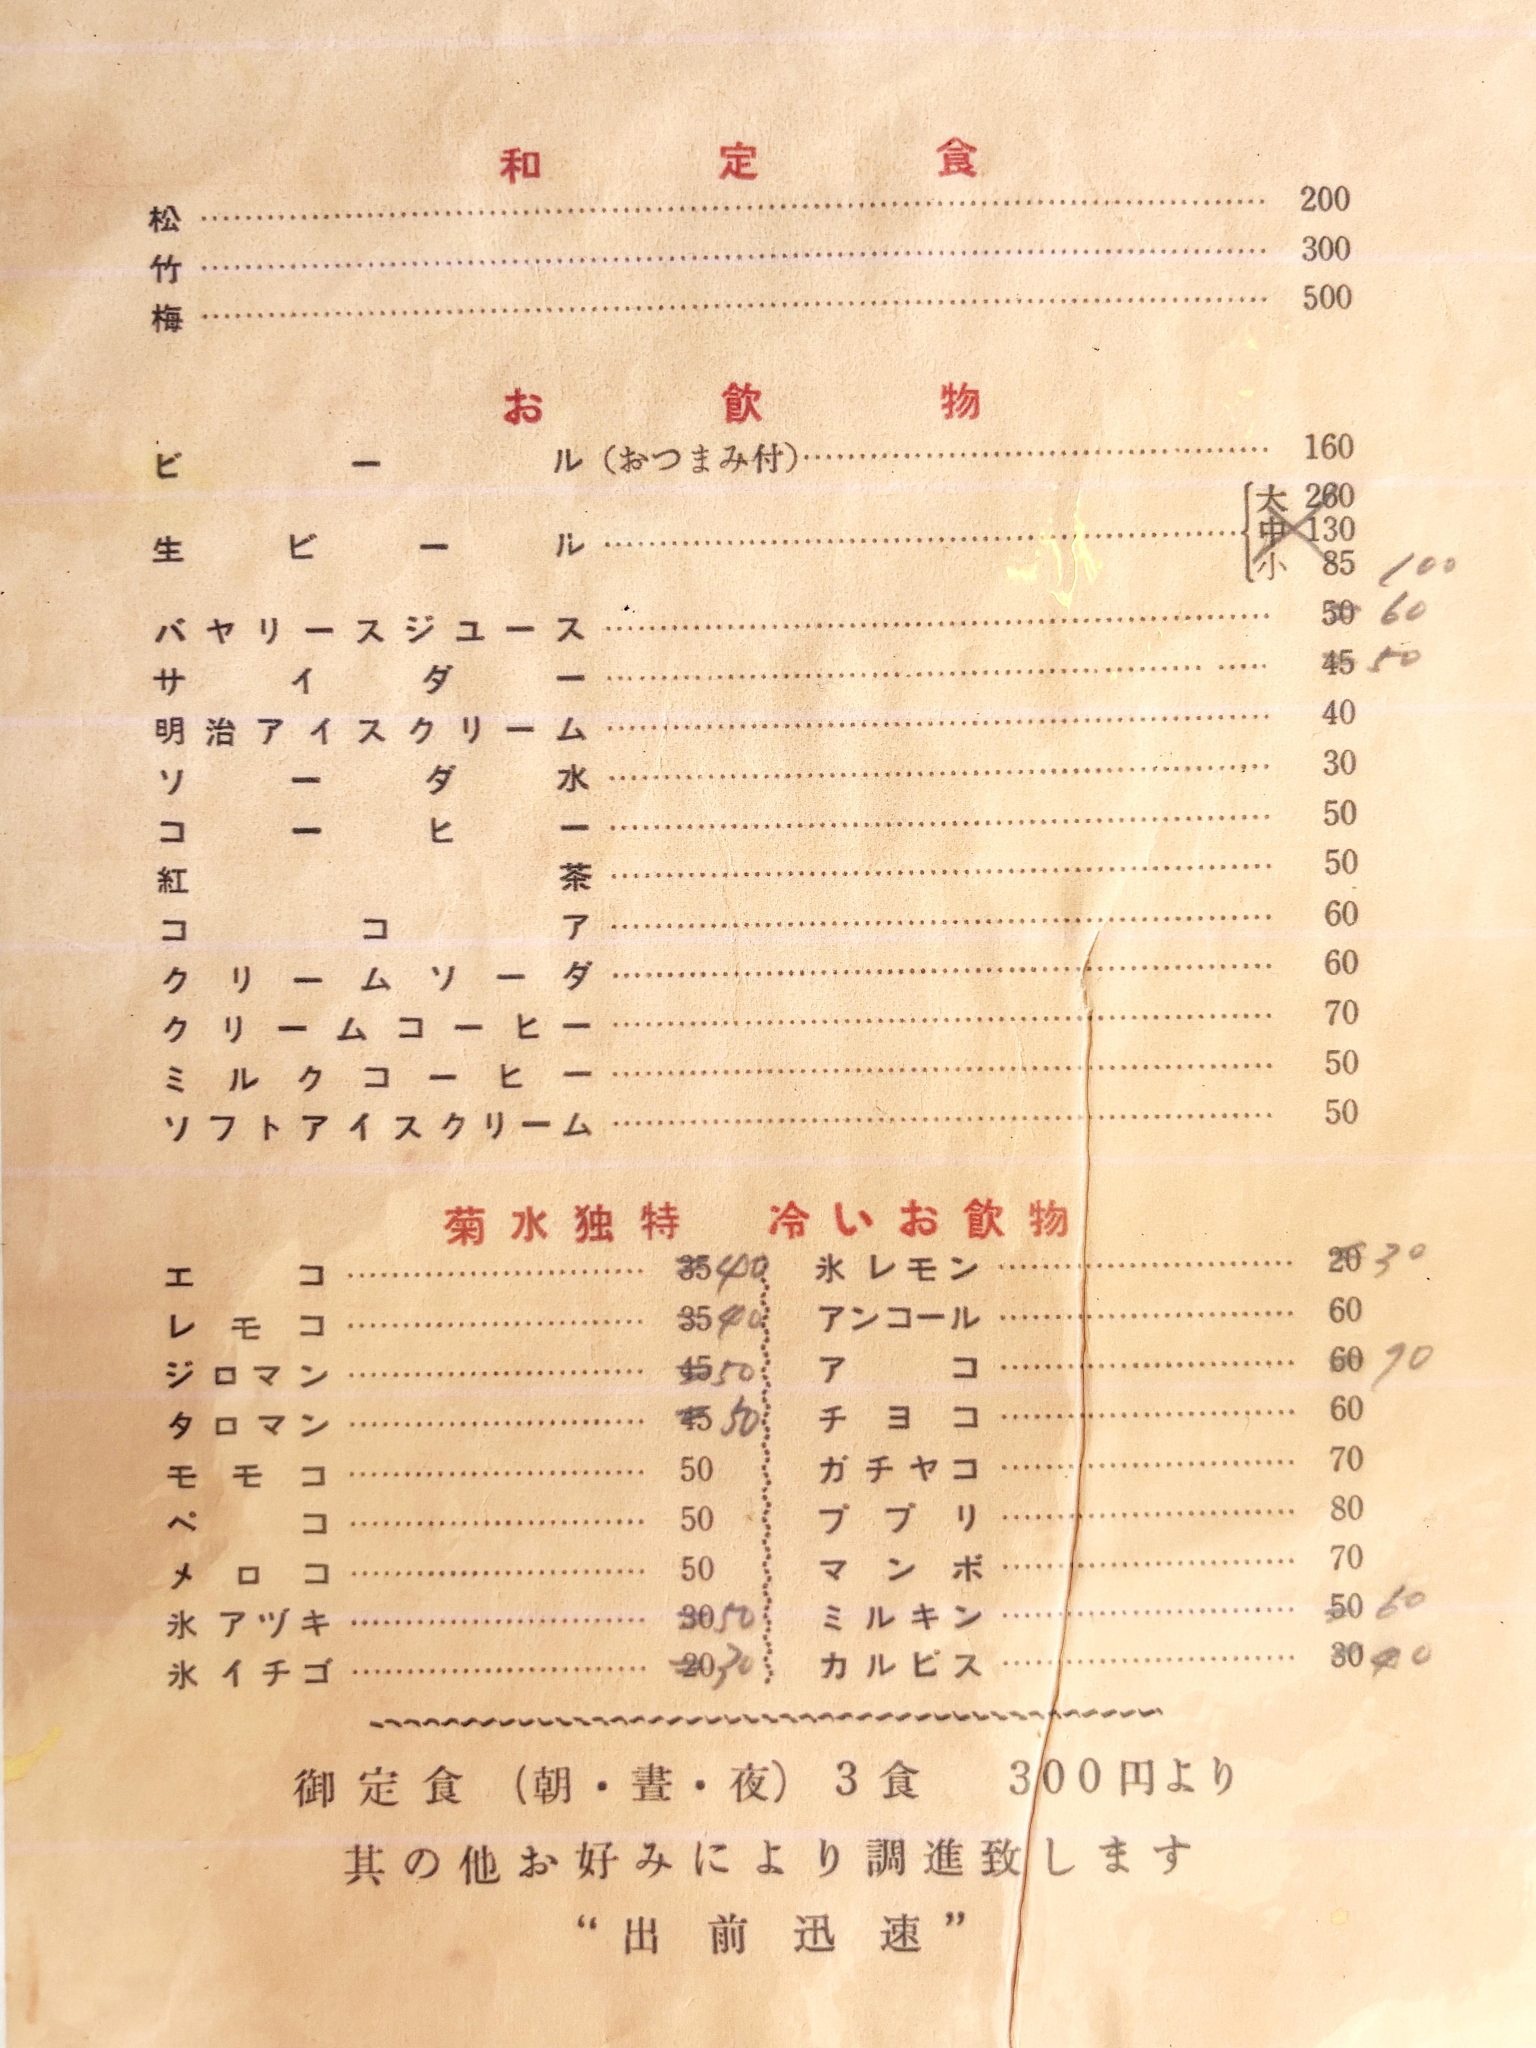 和定食
松 200
竹 300
梅 500
お飲物
ビール(おつまみ付) 160
生ビール 大 260
中 130
小 85 100
バヤリースジユース 50 60
サイダー 45 50
明治アイスクリーム 40
ソーダ水 30
コーヒー 50
紅茶 50
ココア 60
クリームソーダ 60
クリームコーヒー 70
ミルクコーヒー 50
ソフトアイスクリーム 50
菊水独特 冷いお飲物
エコ 35 40
レモコ 35 40
ジロマン 45 50
タロマン 45 50
モモコ 50
ペコ 50
メロコ 50
氷アヅキ 30 50
氷イチゴ 20 30
氷レモン 20 30
アンコール 60
アコ 60 70
チヨコ 60
ガチヤコ 70
ププリ 80
マンボ 70
ミルキン 50 60
カルピス 30 40
御定食(朝・晝・夜)3食 300円より
其の他お好みにより調進致します
“出前迅速”